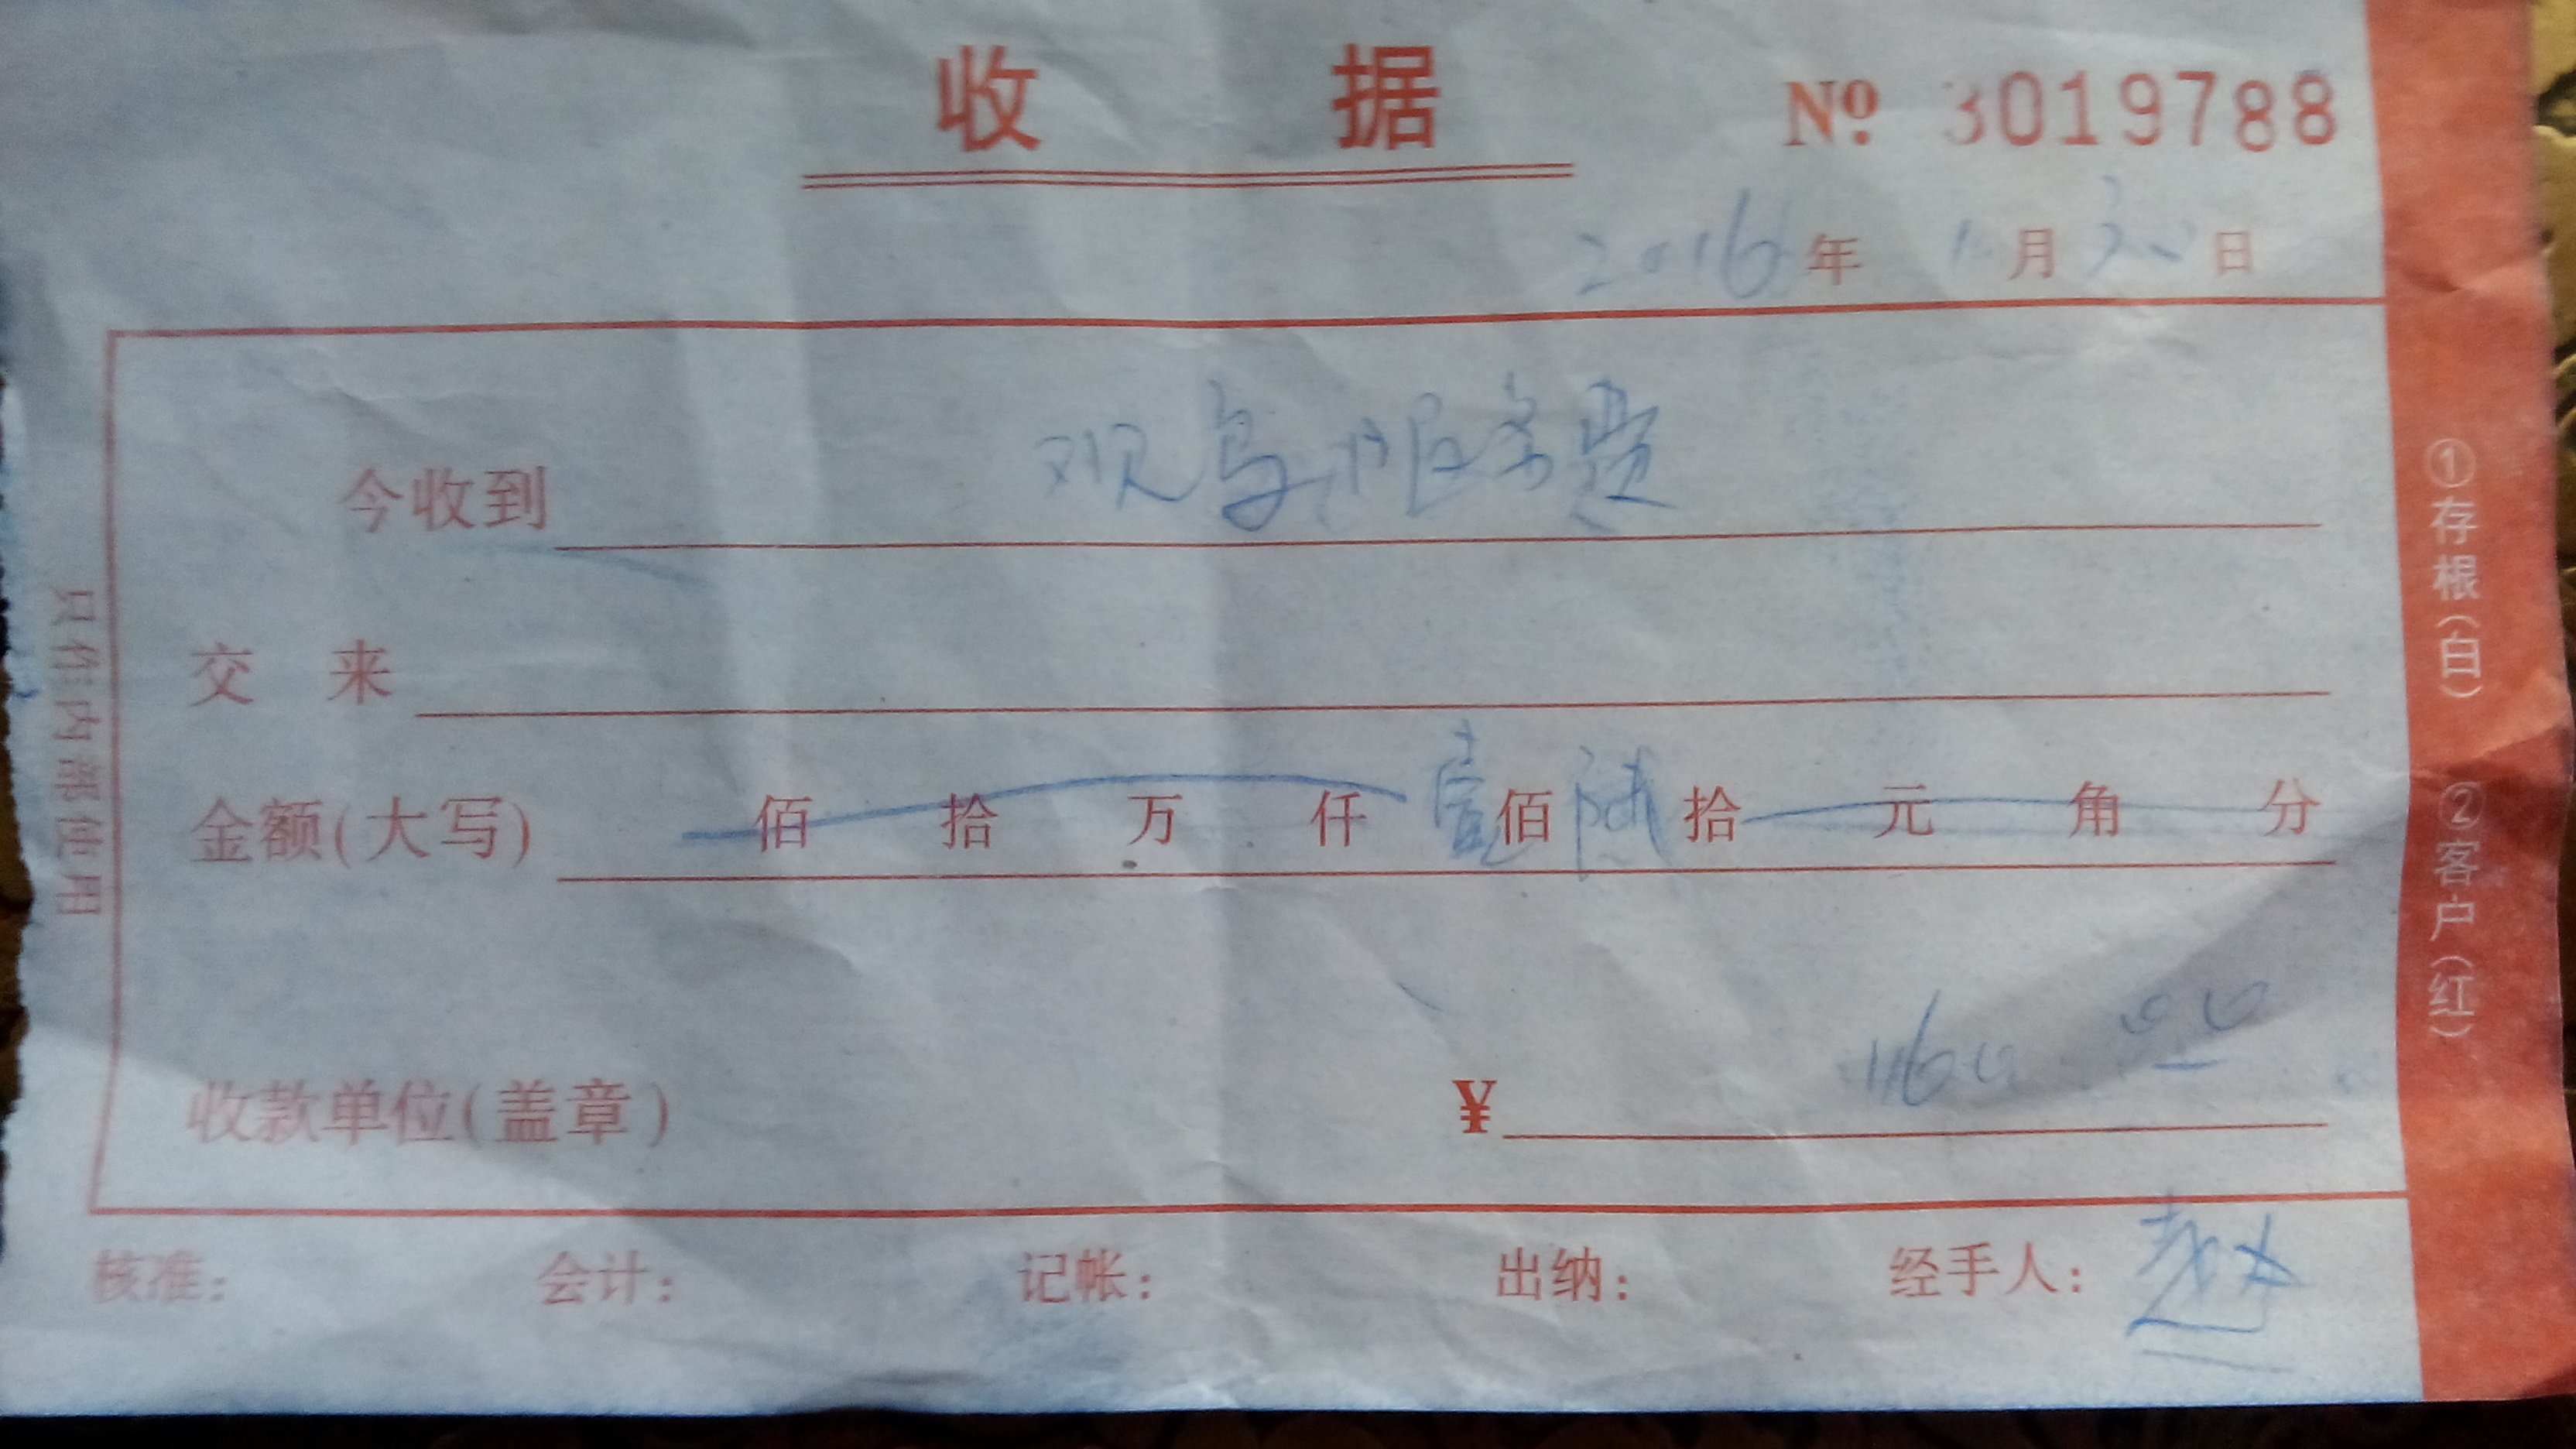 收 据
№ 3019788
2016 年 1 月 30 日
今收到 观鸟服务费
交 来
金额(大写) 佰 拾 万 仟 壹 佰 陆 拾 元 角 分
收款单位(盖章) ¥ 160.00
核准: 会计: 记帐: 出纳: 经手人: 赵
只作内部使用
①存根(白) ②客户(红)